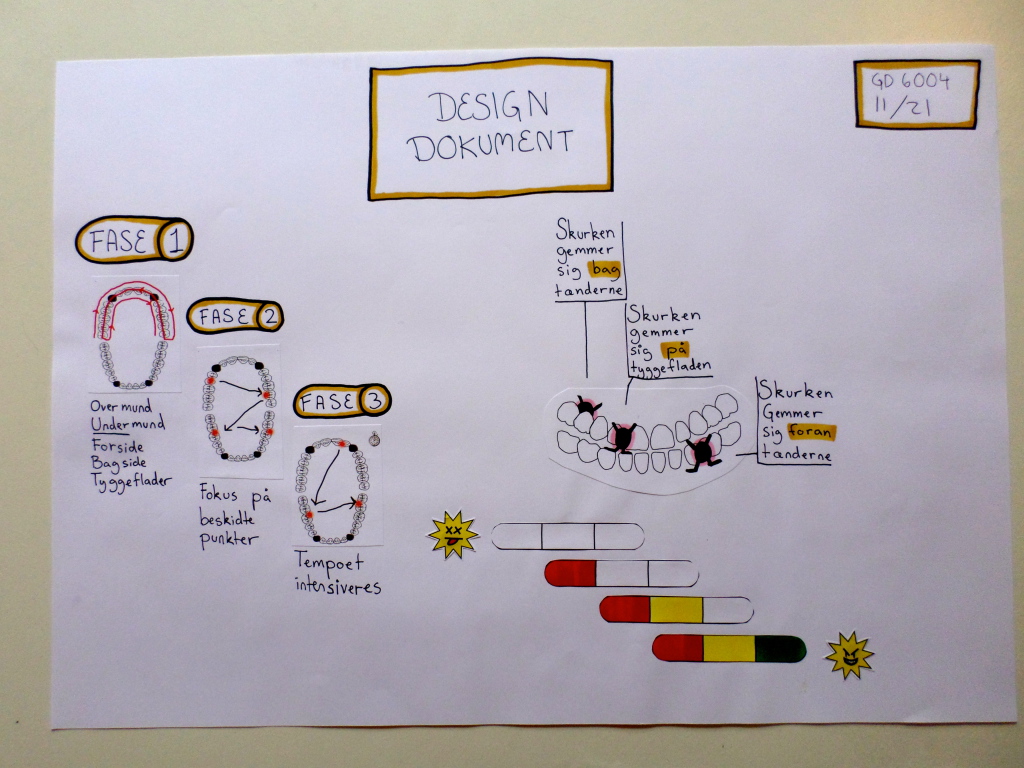 DESIGN
DOKUMENT
GD 6004
11/21
FASE 1
Overmund
Undermund
Forside
Bagside
Tyggeflader
FASE 2
Fokus på
beskidte
punkter
FASE 3
Tempoet
intensiveres
Skurken
gemmer
sig bag
tænderne
Skurken
gemmer
sig på
tyggefladen
Skurken
Gemmer
sig foran
tænderne